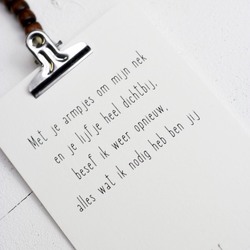 Met je armpjes om mijn nek
en je lijfje heel dichtbij,
besef ik weer opnieuw,
alles wat ik nodig heb ben jij